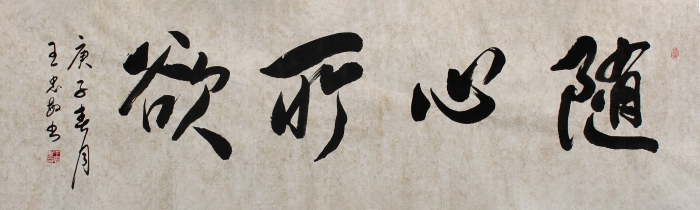 随心所欲
庚子春月
王忠敏书